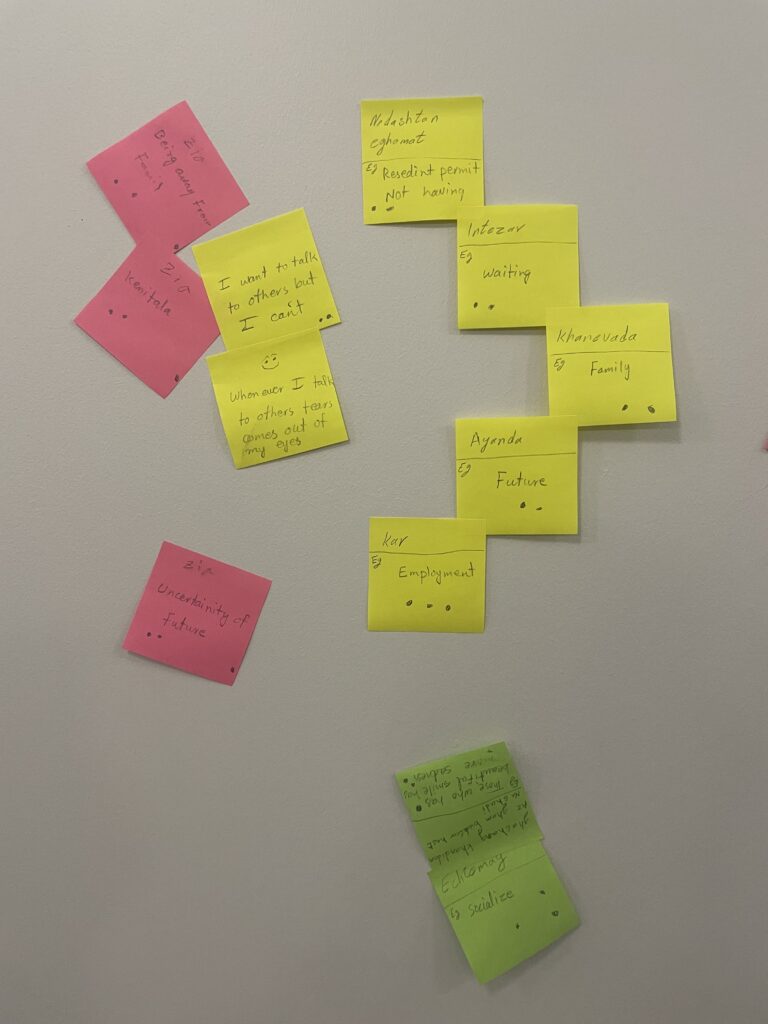 Being away from
Family
Kenitala
I want to talk
to others but
I can't
Whenever I talk
to others tears
comes out of
my eyes
Nadashtan
eghamat
Eg Resedint permit
Not having
Intezar
Eg
waiting
Khanevada
Eg
Family
Ayanda
Eg
Future
Kar
Eg
Employment
Uncertainity of
Future
Those who has
beautiful smile has
more sadness
Eg socialize